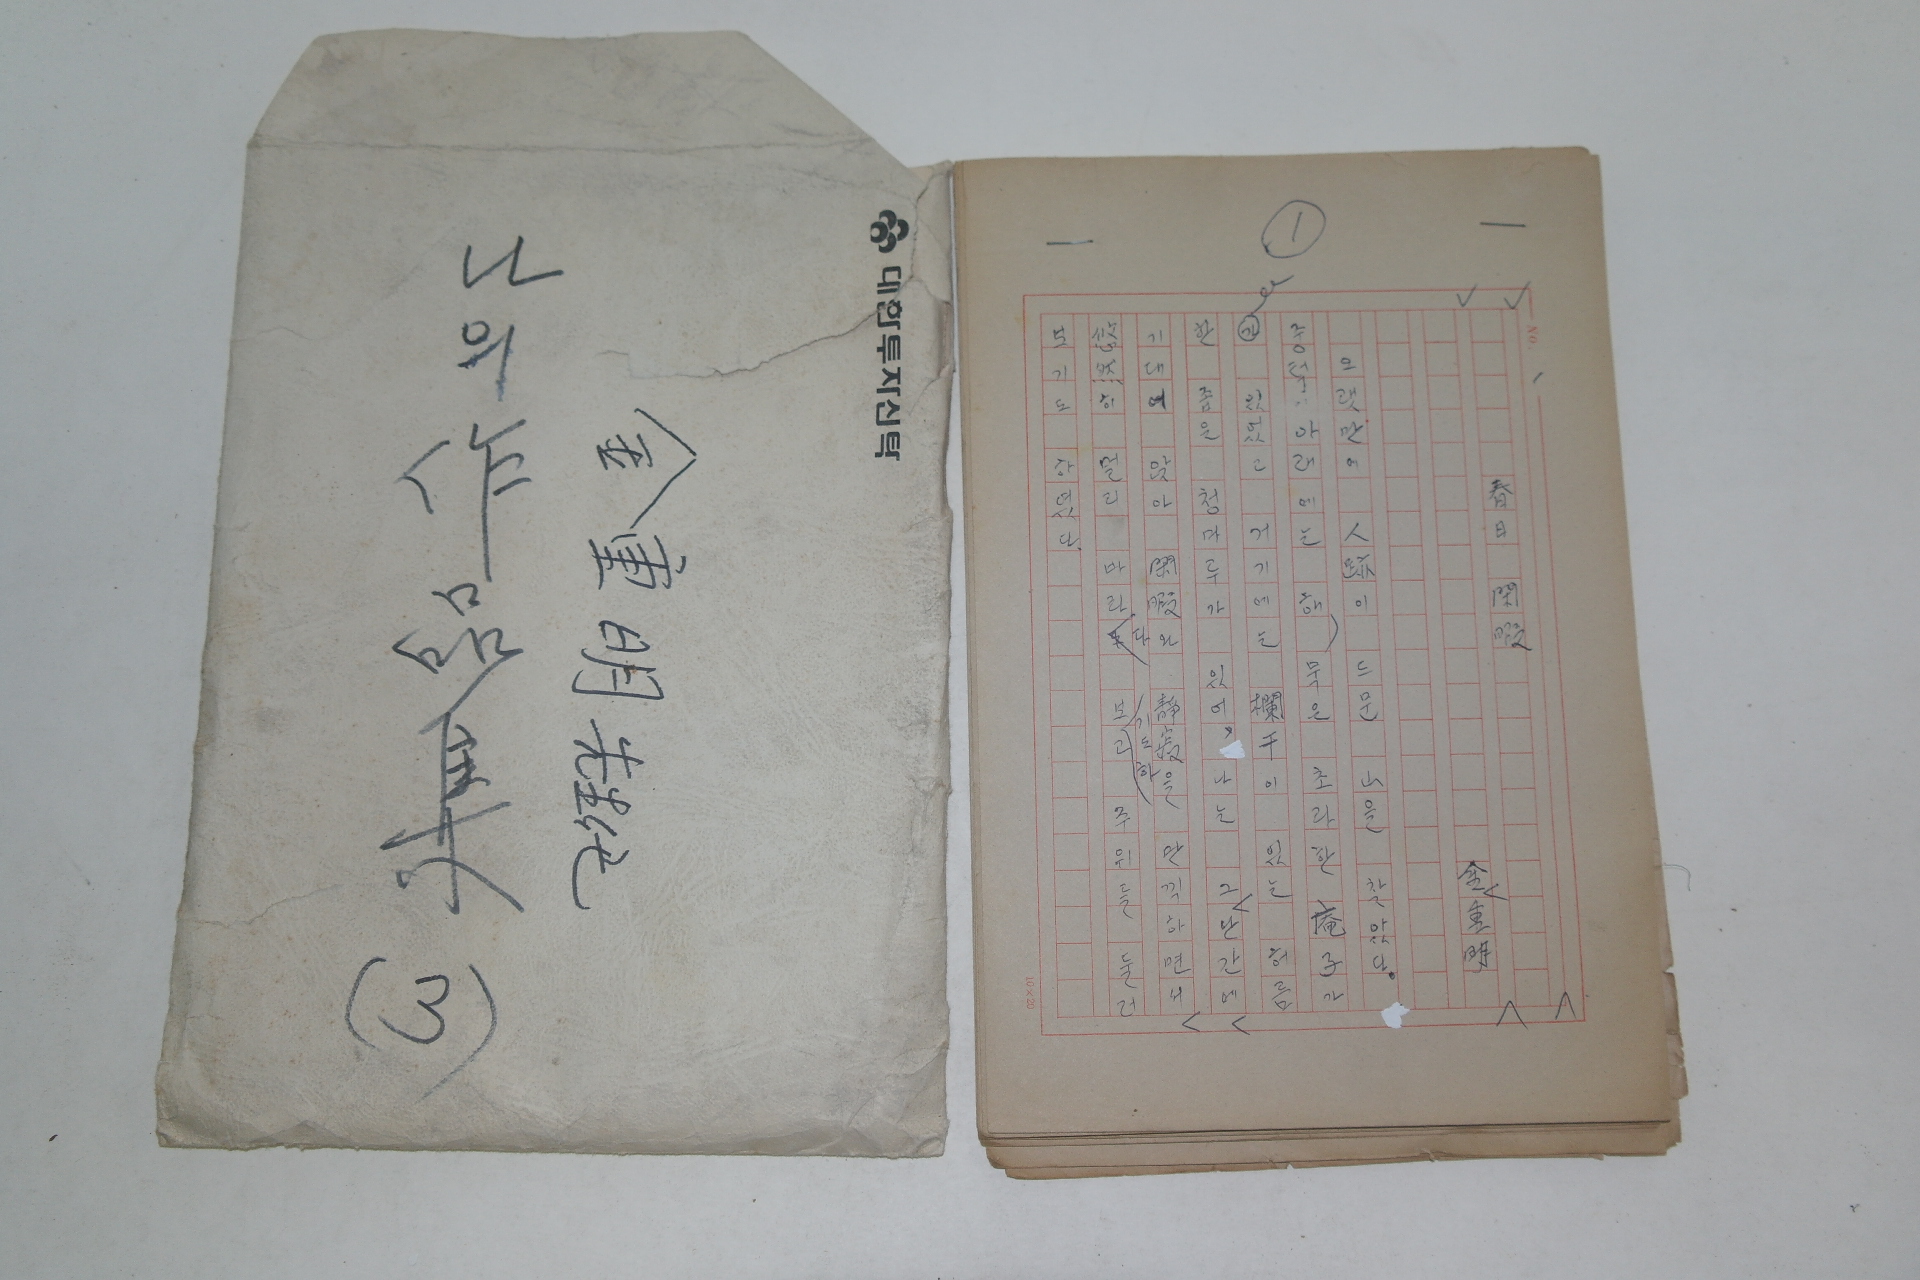 대한투자신탁
나의
金重明
(3)
①
No.
春日 閑暇
金重明
오랫만에 人跡이 드문 山을 찾았다.
아래에는 해묵은 초라한 庵子가
있었고 거기에는 欄干이 있는 허름
한 좁은 청마루가 있어, 나는 그 난간에
기대 앉아 閑暇와 靜寂을 만끽하면서
멀리 바라다 보기도 하고 주위를 둘러
보기도 하였다.
10×20